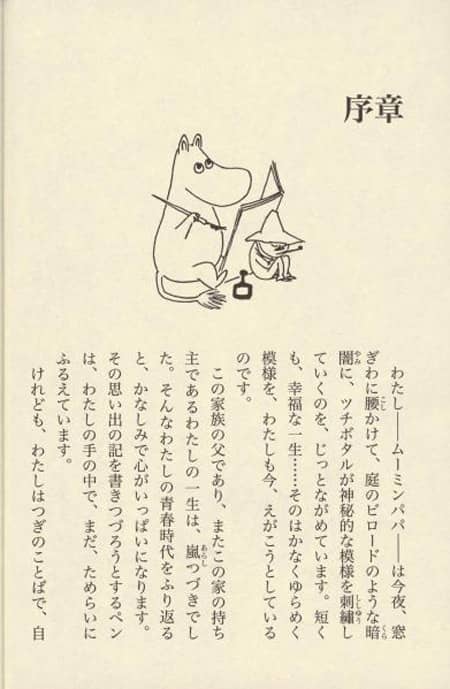 序章
わたし――ムーミンパパ――は今夜、窓
ぎわに腰かけて、庭のビロードのような暗
闇に、ツチボタルが神秘的な模様を刺繡し
ていくのを、じっとながめています。短く
も、幸福な一生……そのはかなくゆらめく
模様を、わたしも今、えがこうとしている
のです。
この家族の父であり、またこの家の持ち
主であるわたしの一生は、嵐つづきでし
た。そんなわたしの青春時代をふり返る
と、かなしみで心がいっぱいになります。
その思い出の記を書きつづろうとするペン
は、わたしの手の中で、まだ、ためらいに
ふるえています。
けれども、わたしはつぎのことばで、自